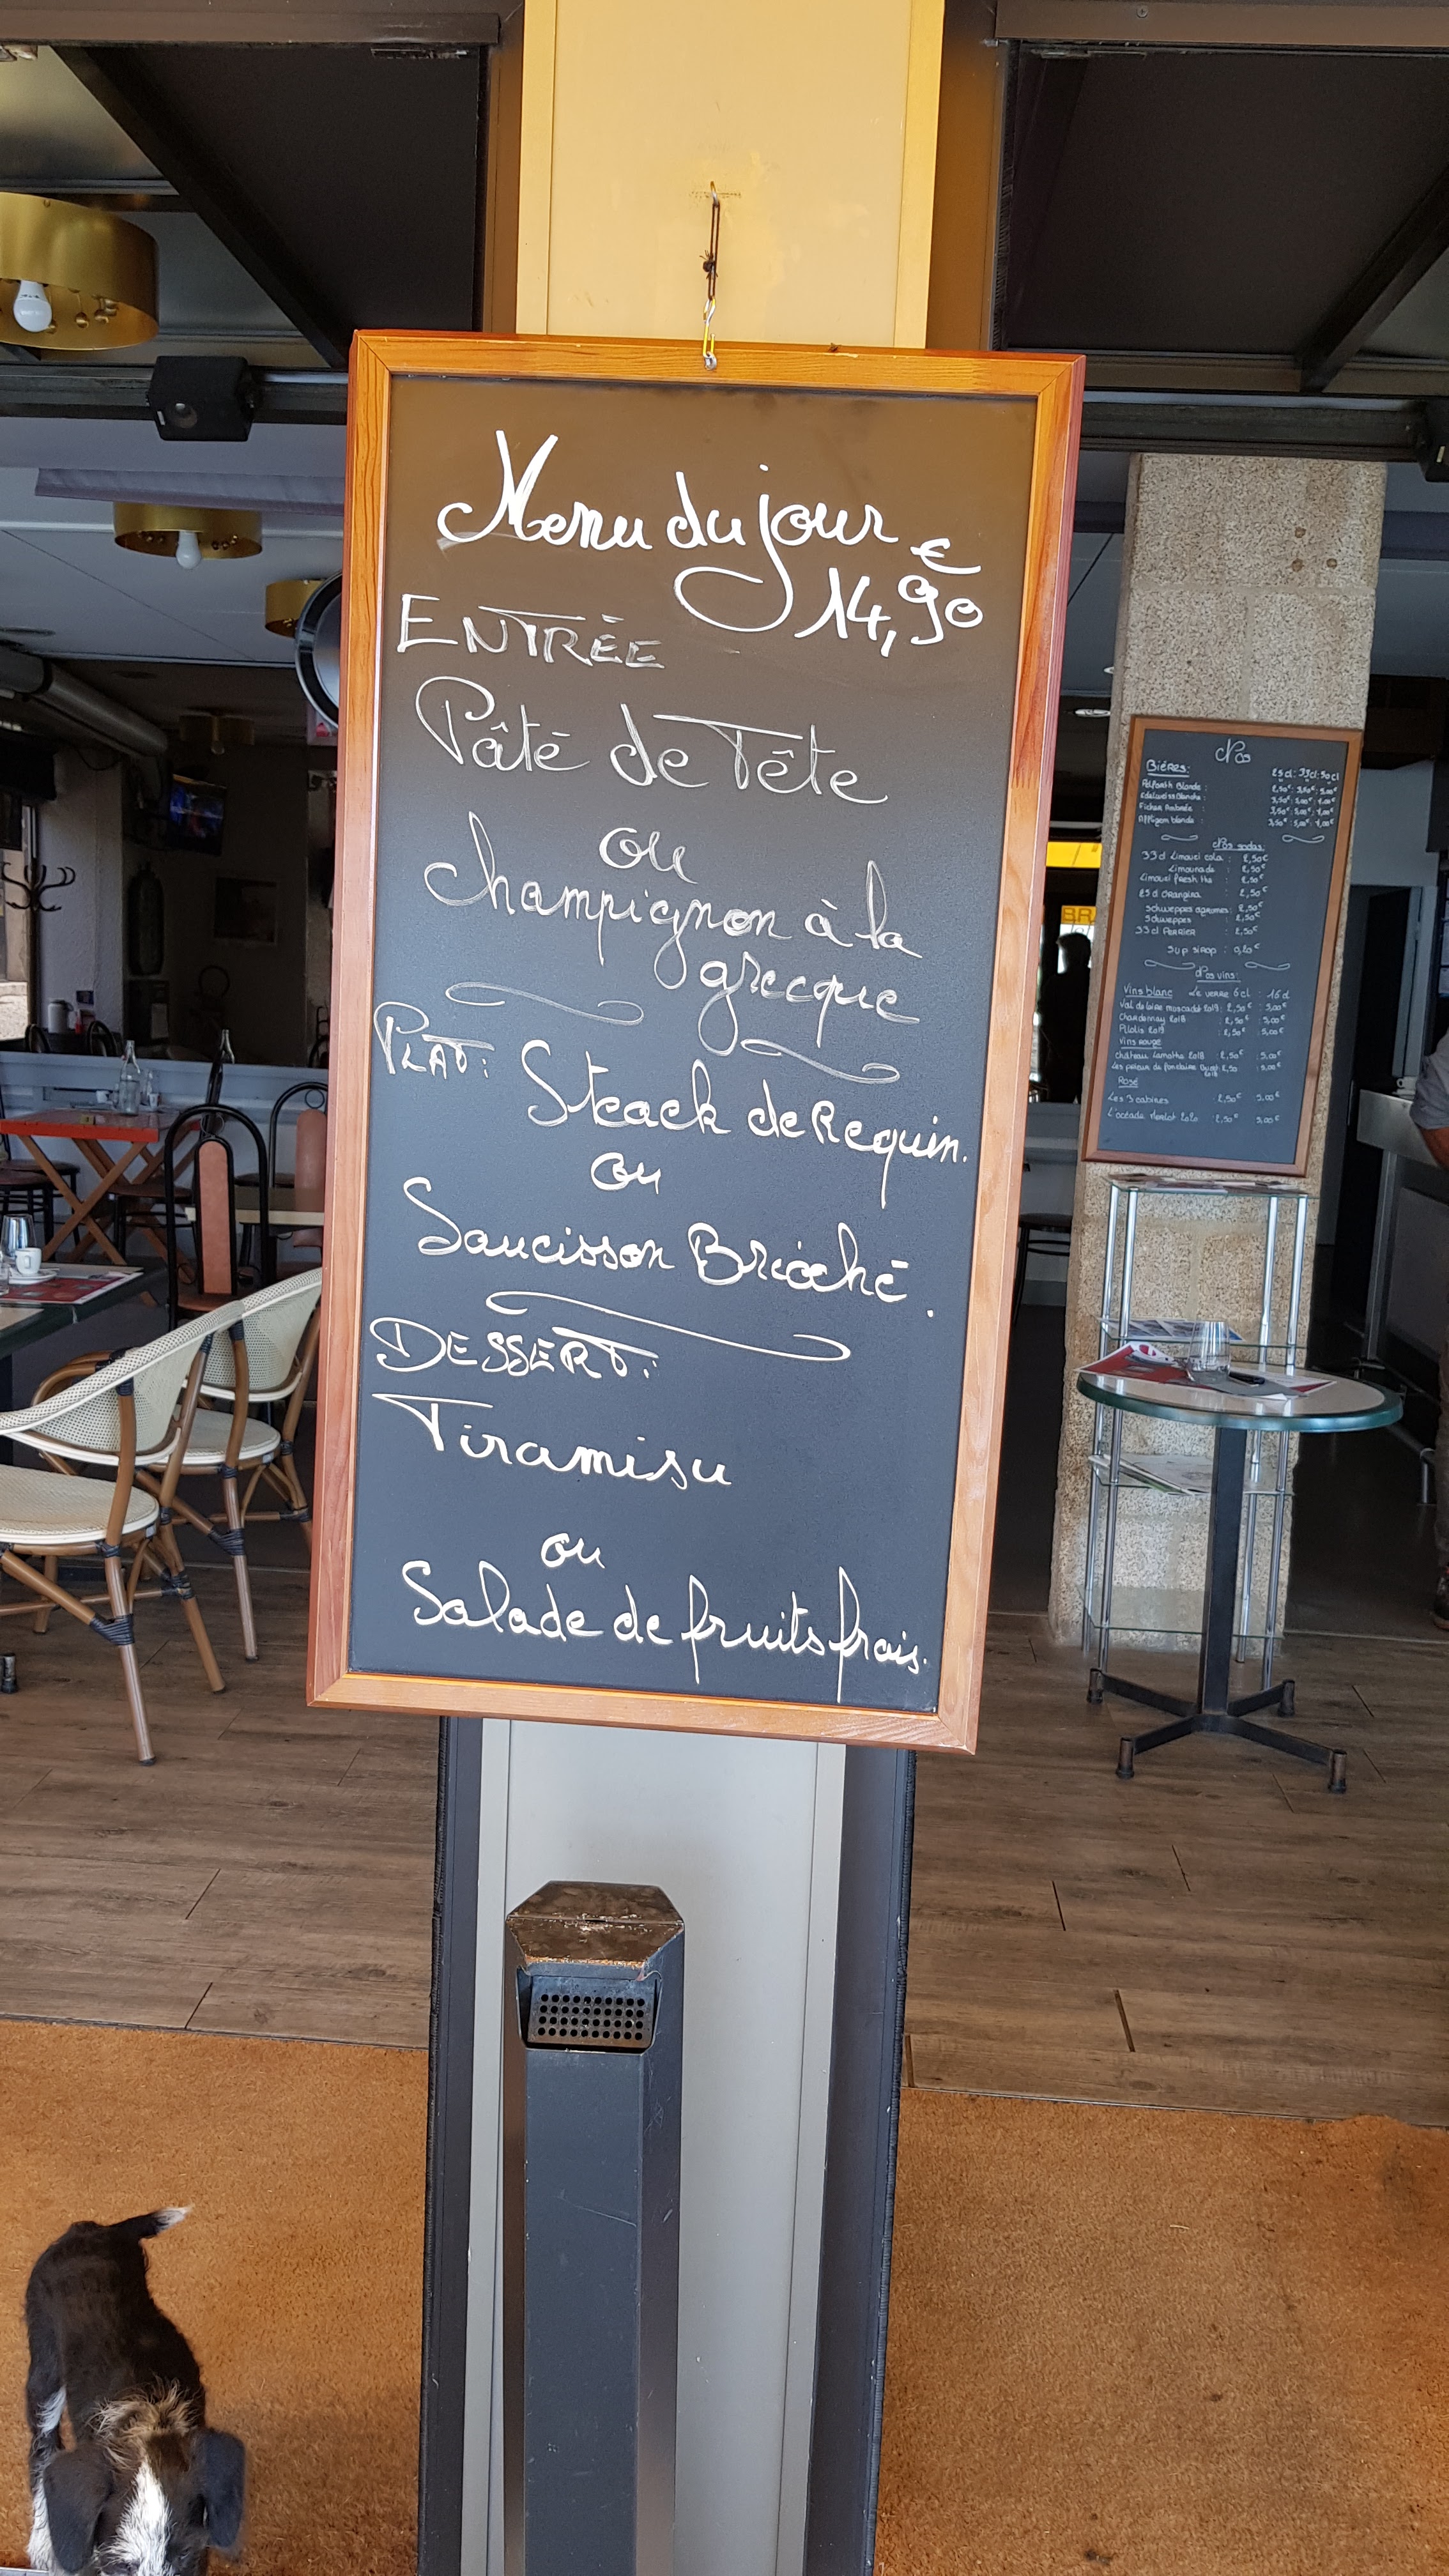 Menu du jour
€
14,90
ENTRÉE
Pâté de Tête
ou
champignon à la
grecque
PLAT: Steack de Requin.
ou
Saucisson Brioché.
DESSERT:
Tiramisu
ou
Salade de fruits frais.
Nos
Bières: 25cl: 33cl: 50cl
Nos sodas:
33cl Limousi cola : 2,50€
Limonade : 2,50€
25cl Orangina : 2,50€
Schweppes agrumes: 2,50€
Schweppes : 2,50€
33cl PERRIER : 2,50€
Sup sirop : 0,20€
Nos vins:
Vins blanc Le verre
Val de loire muscadet 2019 : 2,50€ : 5,00€
Chardonnay 2018 : 2,50€ : 5,00€
: 2,50€ : 5,00€
Vins rouge
Château Lamothe 2018 : 2,50€ : 5,00€
Rosé
Les 3 cabines : 2,50€ 5,00€
Merlot 2020 : 2,50€ 5,00€
BR